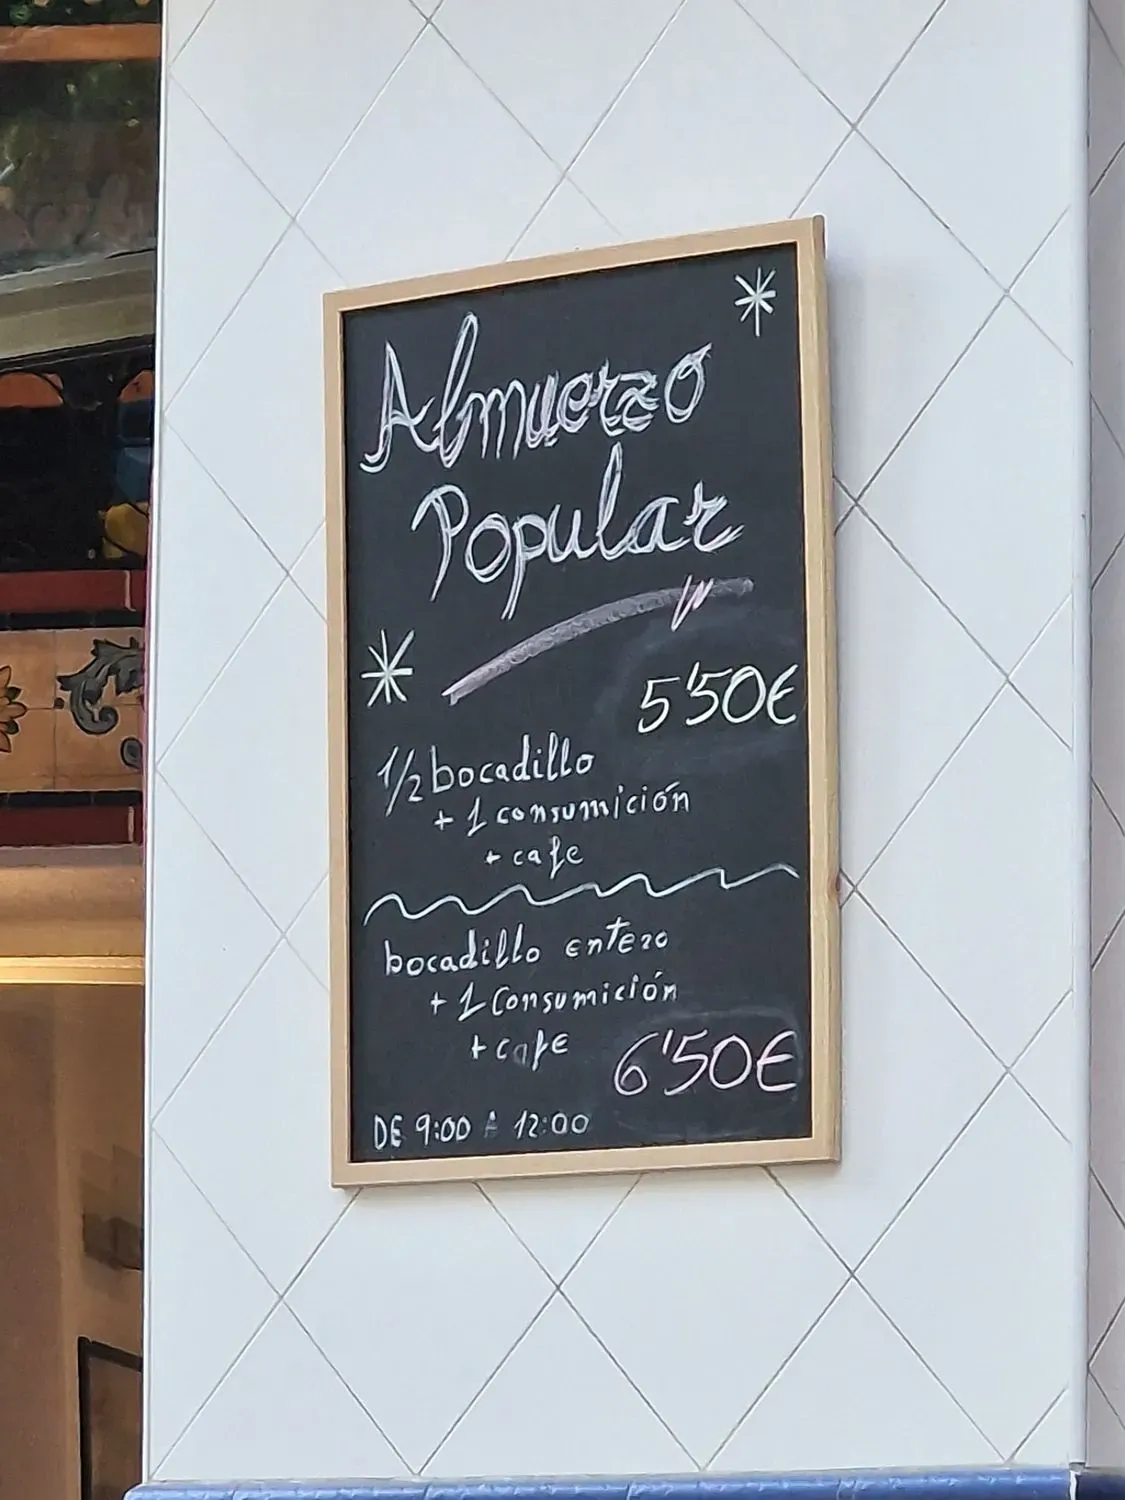 Almuerzo
Popular
5'50€
1/2 bocadillo
+ 1 consumición
+ cafe
bocadillo entero
+ 1 Consumición
+ cafe
6'50€
DE 9:00 A 12:00